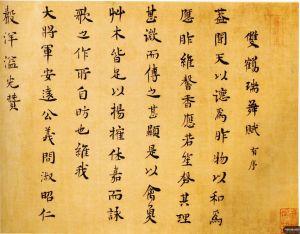 雙鶴瑞舞賦 有序
蓋聞天以德為胙物以和為
應胙維馨香應若笙磬其理
甚微而傳之甚顯是以禽魚
艸木皆足以揚搉休嘉而詠
歌之作所自昉也維我
大將軍安遠公義問淑昭仁
溢光贊